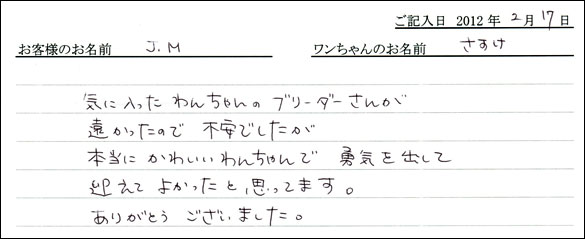 ご記入日 2012 年 2 月 17 日
お客様のお名前 J.M ワンちゃんのお名前 さすけ
気に入った わんちゃんの ブリーダーさんが
遠かったので 不安でしたが
本当に かわいいわんちゃんで 勇気を出して
迎えて よかったと 思ってます。
ありがとう ございました。